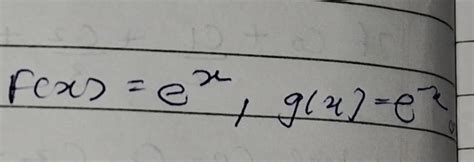 F(x) = e^x, g(x) = e^-x